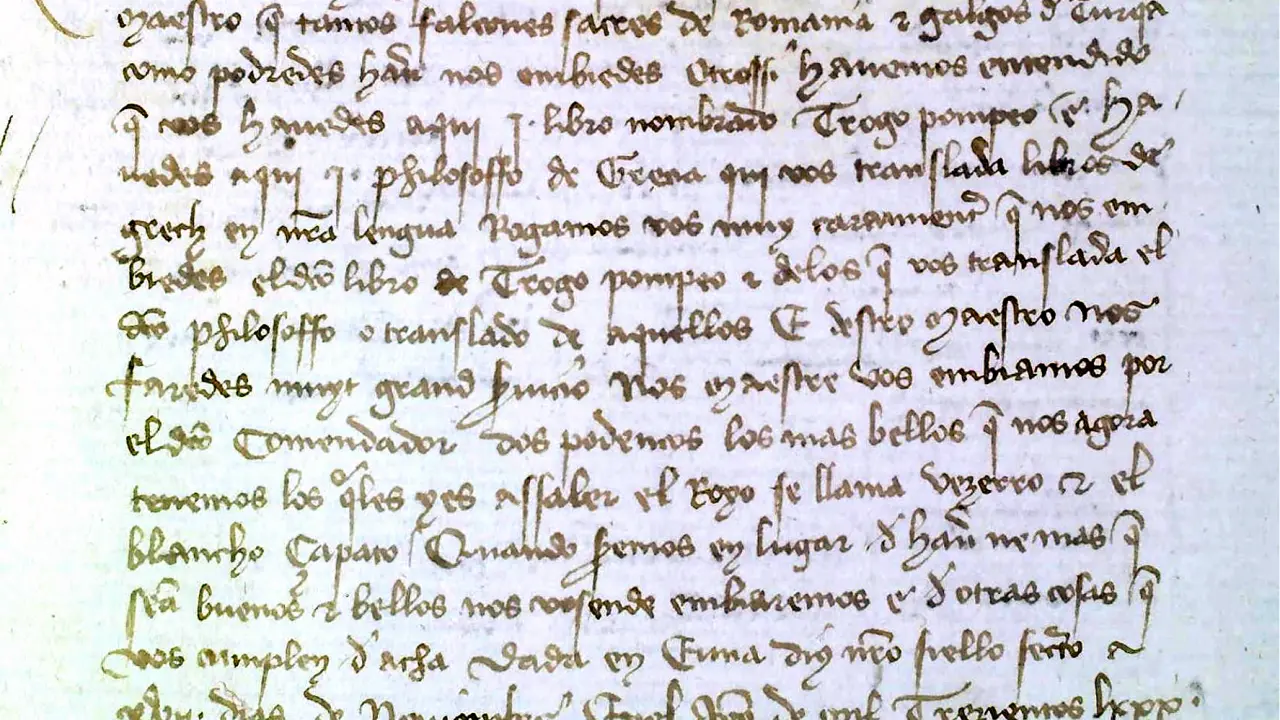 maestro q̄ tantos falcones sacres de Romania ⁊ galgos d Turq̄a
como podredes hau nos embiedes Otrossi hauemos entendido
q̄ vos hauedes aqui j· libro nombrado Trogo pompeo e ha
uedes aqui j· philosoffo de Grecia qui vos translada libros de
grech en nr̄a lengua Rogamos vos muy carament q̄ nos em
biedes el dc̄o libro de Trogo pompeo ⁊ delos q̄ vos translada el
dc̄o philosoffo o translado de aquellos E desto maestro nos
faredes muyt grand s̄uicio Nos maestre vos embiamos por
el dc̄o Comendador dos podencos los mas bellos q̄ nos agora
tenemos los q̄les yes assaber el Royo se llama Vezerro ⁊ el
blancho Çapato Quando s̄emos en lugar d hau ne mas q̄
sean buenos ⁊ bellos nos vos ende embiaremos e d otras cosas q̄
vos cumplen d aca Dada en dius nr̄o siello secreto a
dias de Nouiembre de mil Trezientos lxxx·